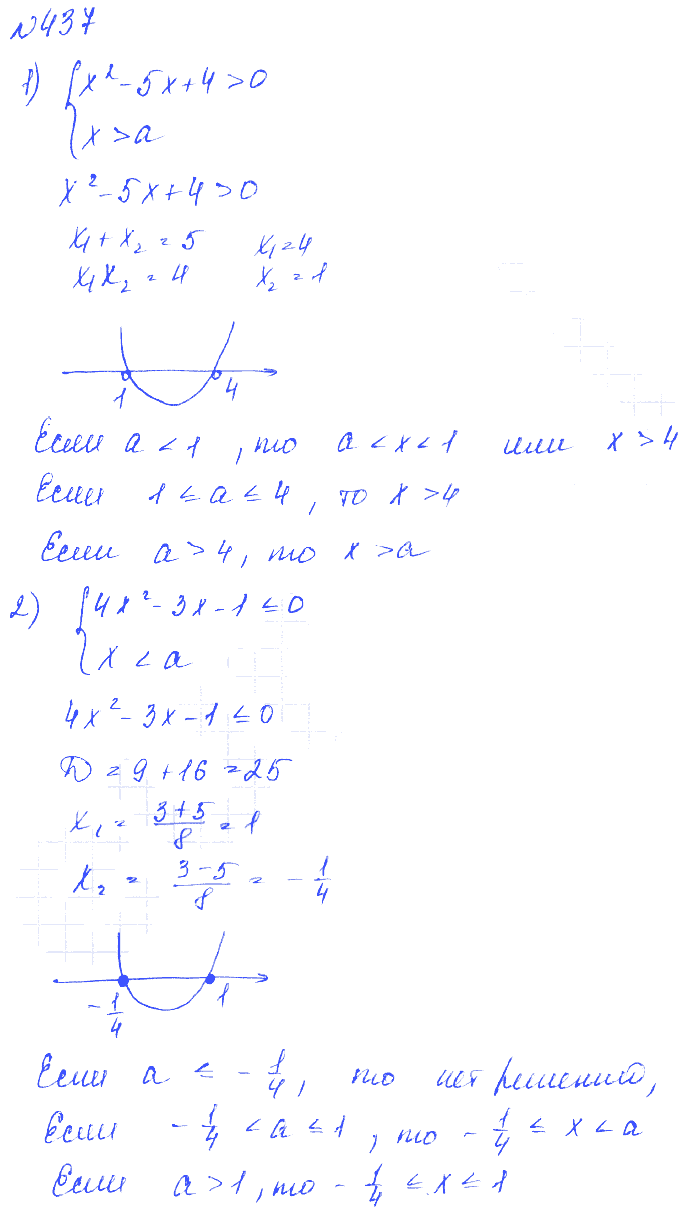 №437
1) { x² - 5x + 4 > 0
x > a
x² - 5x + 4 > 0
x₁ + x₂ = 5 x₁ = 4
x₁x₂ = 4 x₂ = 1
1 4
Если a < 1, то a < x < 1 или x > 4
Если 1 ≤ a ≤ 4, то x > 4
Если a > 4, то x > a
2) { 4x² - 3x - 1 ≤ 0
x < a
4x² - 3x - 1 ≤ 0
D = 9 + 16 = 25
x₁ = (3+5)/8 = 1
x₂ = (3-5)/8 = -1/4
-1/4 1
Если a ≤ -1/4, то нет решений,
Если -1/4 < a ≤ 1, то -1/4 ≤ x < a
Если a > 1, то -1/4 ≤ x ≤ 1